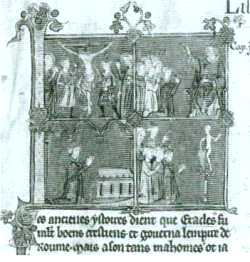 Li
Cap. j
Les ancienes ystoires dient que Eracles fu
mlt boens crestiens et governa lempire de
Roume. Mais a son tans mahomes ot ia